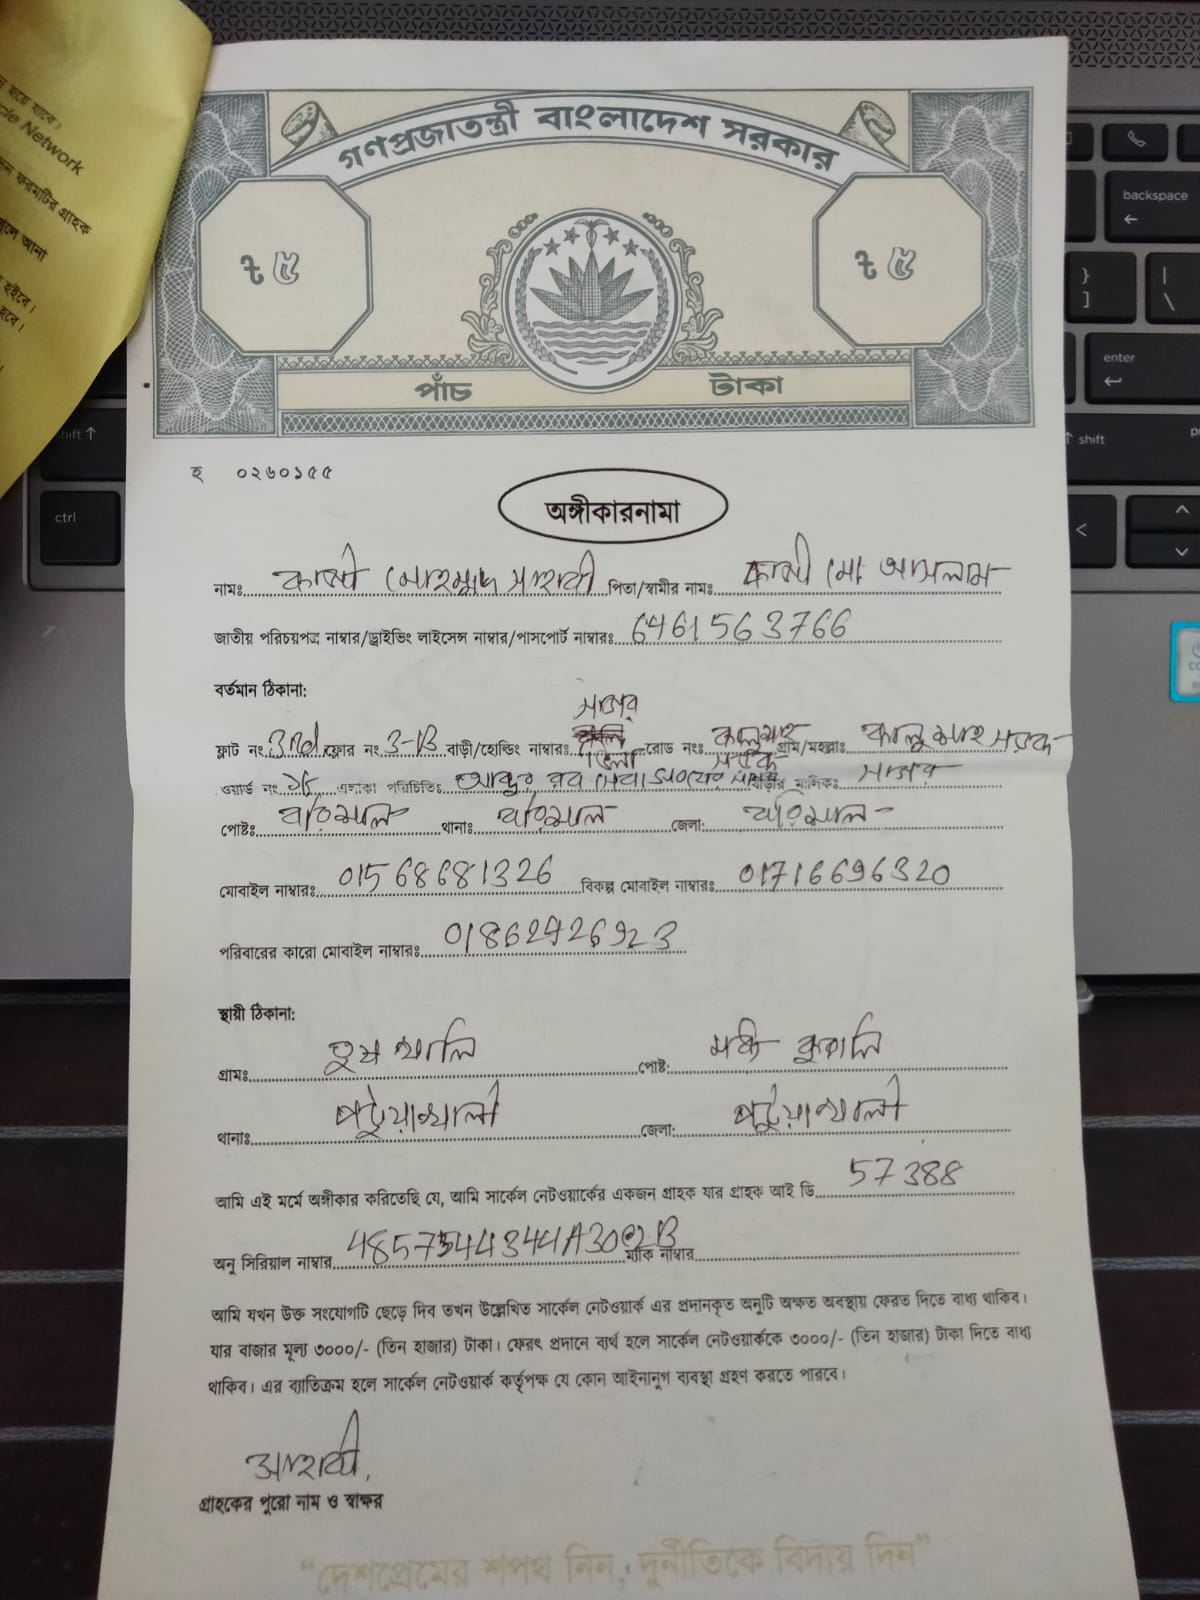 হয়ে যাবে।
cle Network
ফরমটির গ্রাহক
আনা
হইবে।
হবে।
গণপ্রজাতন্ত্রী বাংলাদেশ সরকার
৳ ৫ ৳ ৫
পাঁচ টাকা
হ ০২৬০১৫৫
অঙ্গীকারনামা
নামঃ কাজী মোহাম্মদ সাহাবী পিতা/স্বামীর নামঃ কাজী মোঃ আসলাম
জাতীয় পরিচয়পত্র নাম্বার/ড্রাইভিং লাইসেন্স নাম্বার/পাসপোর্ট নাম্বারঃ 6461563766
বর্তমান ঠিকানা:
ফ্লাট নং 3rd ফ্লোর নং 3-B বাড়ী/হোল্ডিং নাম্বারঃ ভিলা রোড নংঃ কালুশাহ সড়ক গ্রাম/মহল্লাঃ কালুশাহ সড়ক
ওয়ার্ড নং এলাকা পরিচিতিঃ আব্দুর রব বাড়ীর মালিকঃ
পোষ্টঃ বরিশাল থানাঃ বরিশাল জেলা: বরিশাল
মোবাইল নাম্বারঃ 01568681326 বিকল্প মোবাইল নাম্বারঃ 01716696320
পরিবারের কারো মোবাইল নাম্বারঃ
স্থায়ী ঠিকানা:
গ্রামঃ পোষ্ট:
থানাঃ পটুয়াখালী জেলা: পটুয়াখালী
আমি এই মর্মে অঙ্গীকার করিতেছি যে, আমি সার্কেল নেটওয়ার্কের একজন গ্রাহক যার গ্রাহক আই ডি 57388
অনু সিরিয়াল নাম্বার ম্যাক নাম্বার
আমি যখন উক্ত সংযোগটি ছেড়ে দিব তখন উল্লেখিত সার্কেল নেটওয়ার্ক এর প্রদানকৃত অনুটি অক্ষত অবস্থায় ফেরত দিতে বাধ্য থাকিব।
যার বাজার মূল্য ৩০০০/- (তিন হাজার) টাকা। ফেরৎ প্রদানে ব্যর্থ হলে সার্কেল নেটওয়ার্ককে ৩০০০/- (তিন হাজার) টাকা দিতে বাধ্য
থাকিব। এর ব্যাতিক্রম হলে সার্কেল নেটওয়ার্ক কর্তৃপক্ষ যে কোন আইনানুগ ব্যবস্থা গ্রহণ করতে পারবে।
গ্রাহকের পুরো নাম ও স্বাক্ষর
“দেশপ্রেমের শপথ নিন, দুর্নীতিকে বিদায় দিন”
backspace
}
]
|
\
enter
shift
shift
ctrl